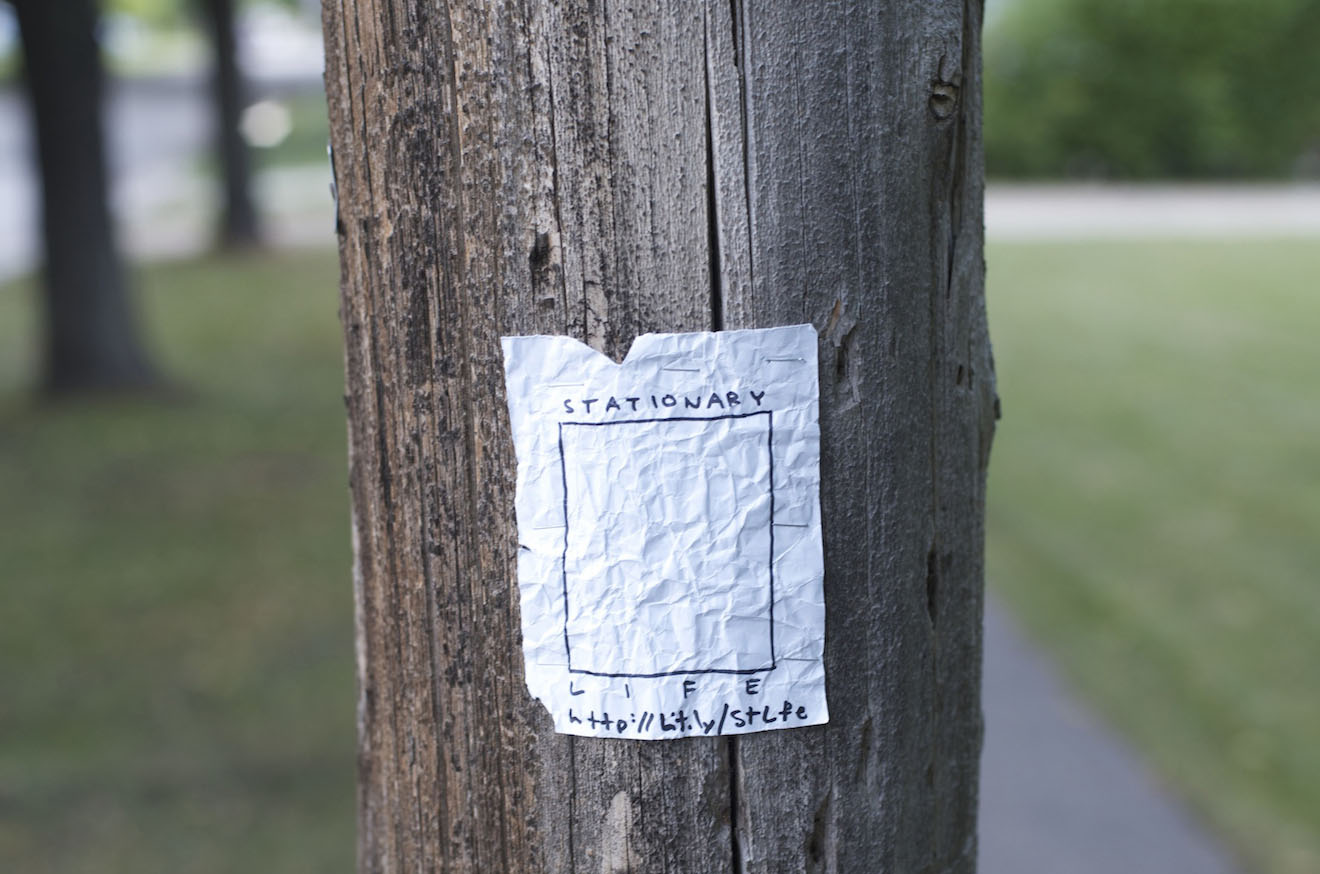 STATIONARY
LIFE
http://bit.ly/StLfe